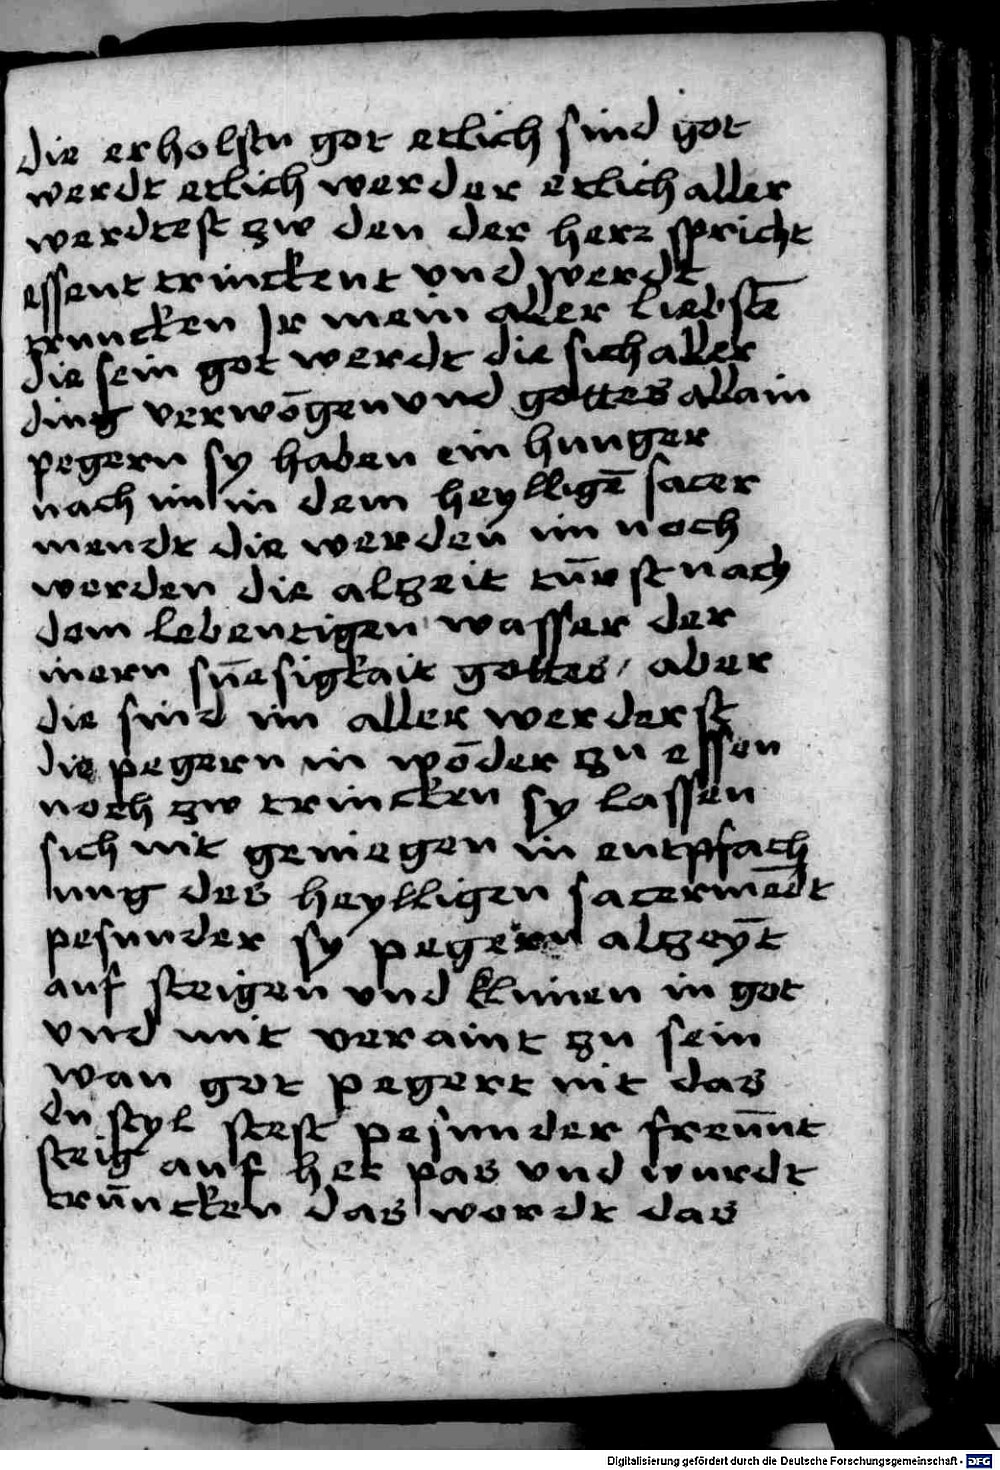 die erholstn got etlich sind got
werdt etlich werder etlich aller
werdtest zw den der herz spricht
essent trinckent vnd werdt
trunncken Ir mein aller liebstē
die sein got werdt die sich aller
ding verwōgen vnd gottes allain
pegern sy haben ein hunger
nach im in dem heylligē sacer
mendt die werden im noch
werden die alzeit tūrst nach
dem lebentigen wasser der
inern sūesigkait gottes / aber
die sind im aller werderst
die pegern in wōder zu essen
noch zw trincken sy lassen
sich nit geniegen in entpfach
ung des heylligen sacermēdt
pesunder sy pegern alzeyt
auf steigen vnd klimen in got
vnd mit veraint zu sein
wan got pegert nit das
du styl stest pesunder freūnt
steig auf het pas vnd wurdt
trūncken das wordt das
Digitalisierung gefördert durch die Deutsche Forschungsgemeinschaft - DFG